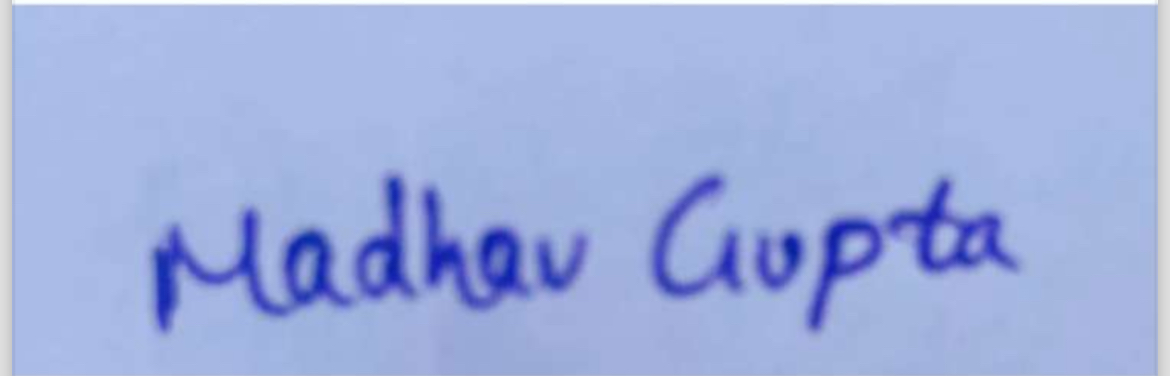 Madhav Gupta